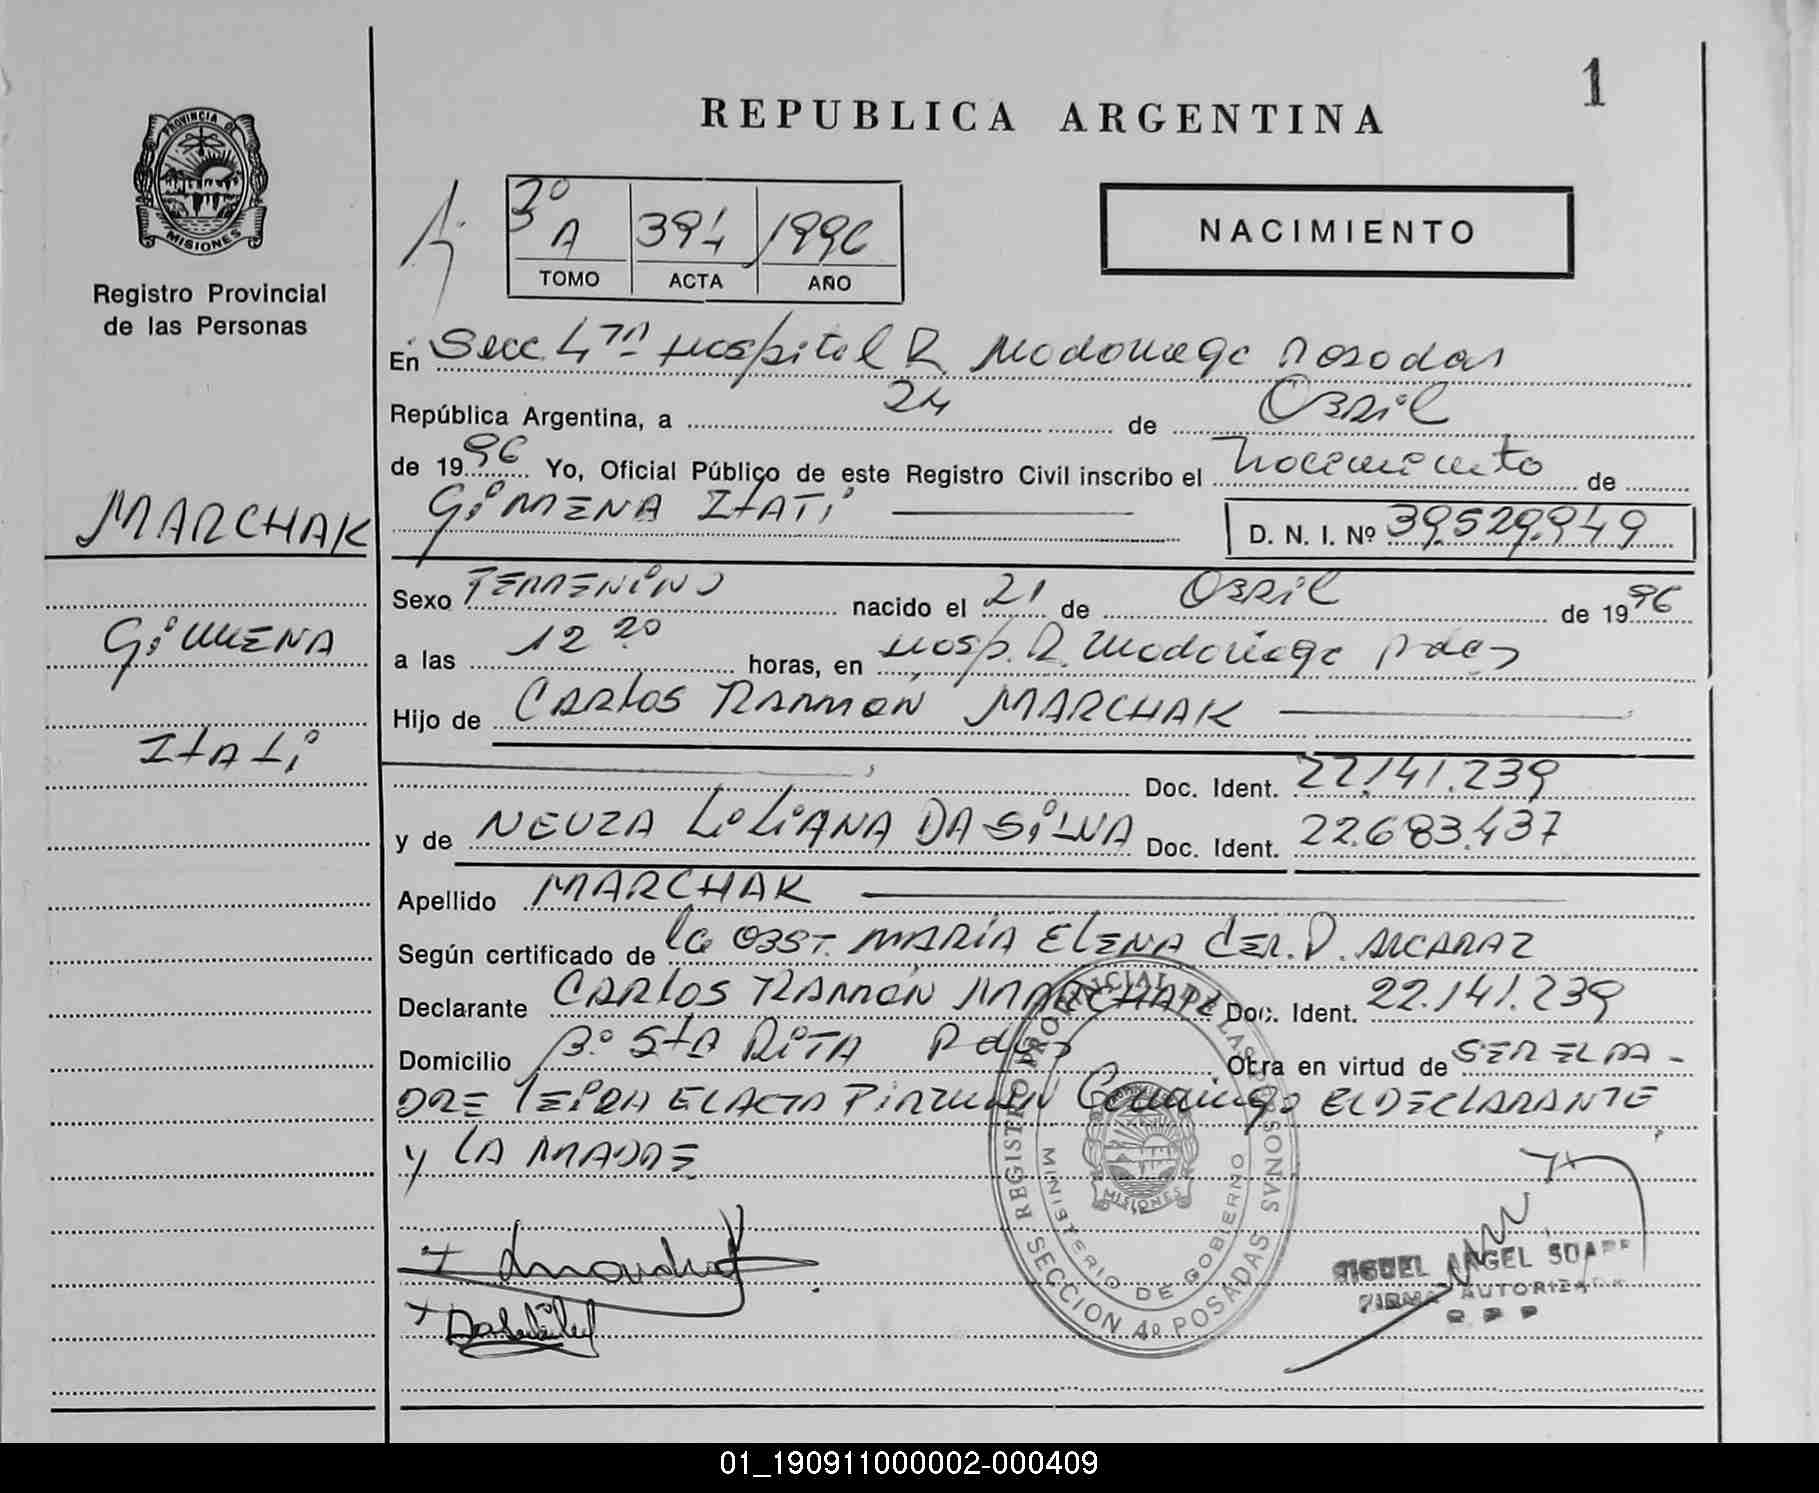 1
REPUBLICA ARGENTINA
PROVINCIA DE
MISIONES
Registro Provincial
de las Personas
3º A 394 1996
TOMO ACTA AÑO
NACIMIENTO
En Secc. 4ta Hospital R. Madariaga Posadas
República Argentina, a 24 de Abril
de 1996 Yo, Oficial Público de este Registro Civil inscribo el nacimiento de
MARCHAK
GiMENA ItATí D. N. I. Nº 39.529.949
Sexo FEMENINO nacido el 21 de Abril de 1996
GiMENA
a las 12 20 horas, en Hosp. R. Madariaga Pdas
Hijo de CARlos RAMóN MARCHAK
ItAtí
Doc. Ident. 22.141.239
y de NEUZA LiLiANA DA SiLVA Doc. Ident. 22.683.437
Apellido MARCHAK
Según certificado de la OBST. MARÍA ElENA dER. D. ALCARAZ
Declarante CARlos RAMóN MARCHAK Doc. Ident. 22.141.239
Domicilio Bº StA RiTA Pdas Otra en virtud de SER EL PA-
DRE lEIDA El ACTA FIRMAN Conmigo El DEClARANTE
y LA MADRE
REGISTRO PROVINCIAL DE LAS PERSONAS
MINISTERIO DE GOBIERNO
MISIONES
SECCION 4º POSADAS
MIGUEL ANGEL
FIRMA AUTORIZADA
01_190911000002-000409